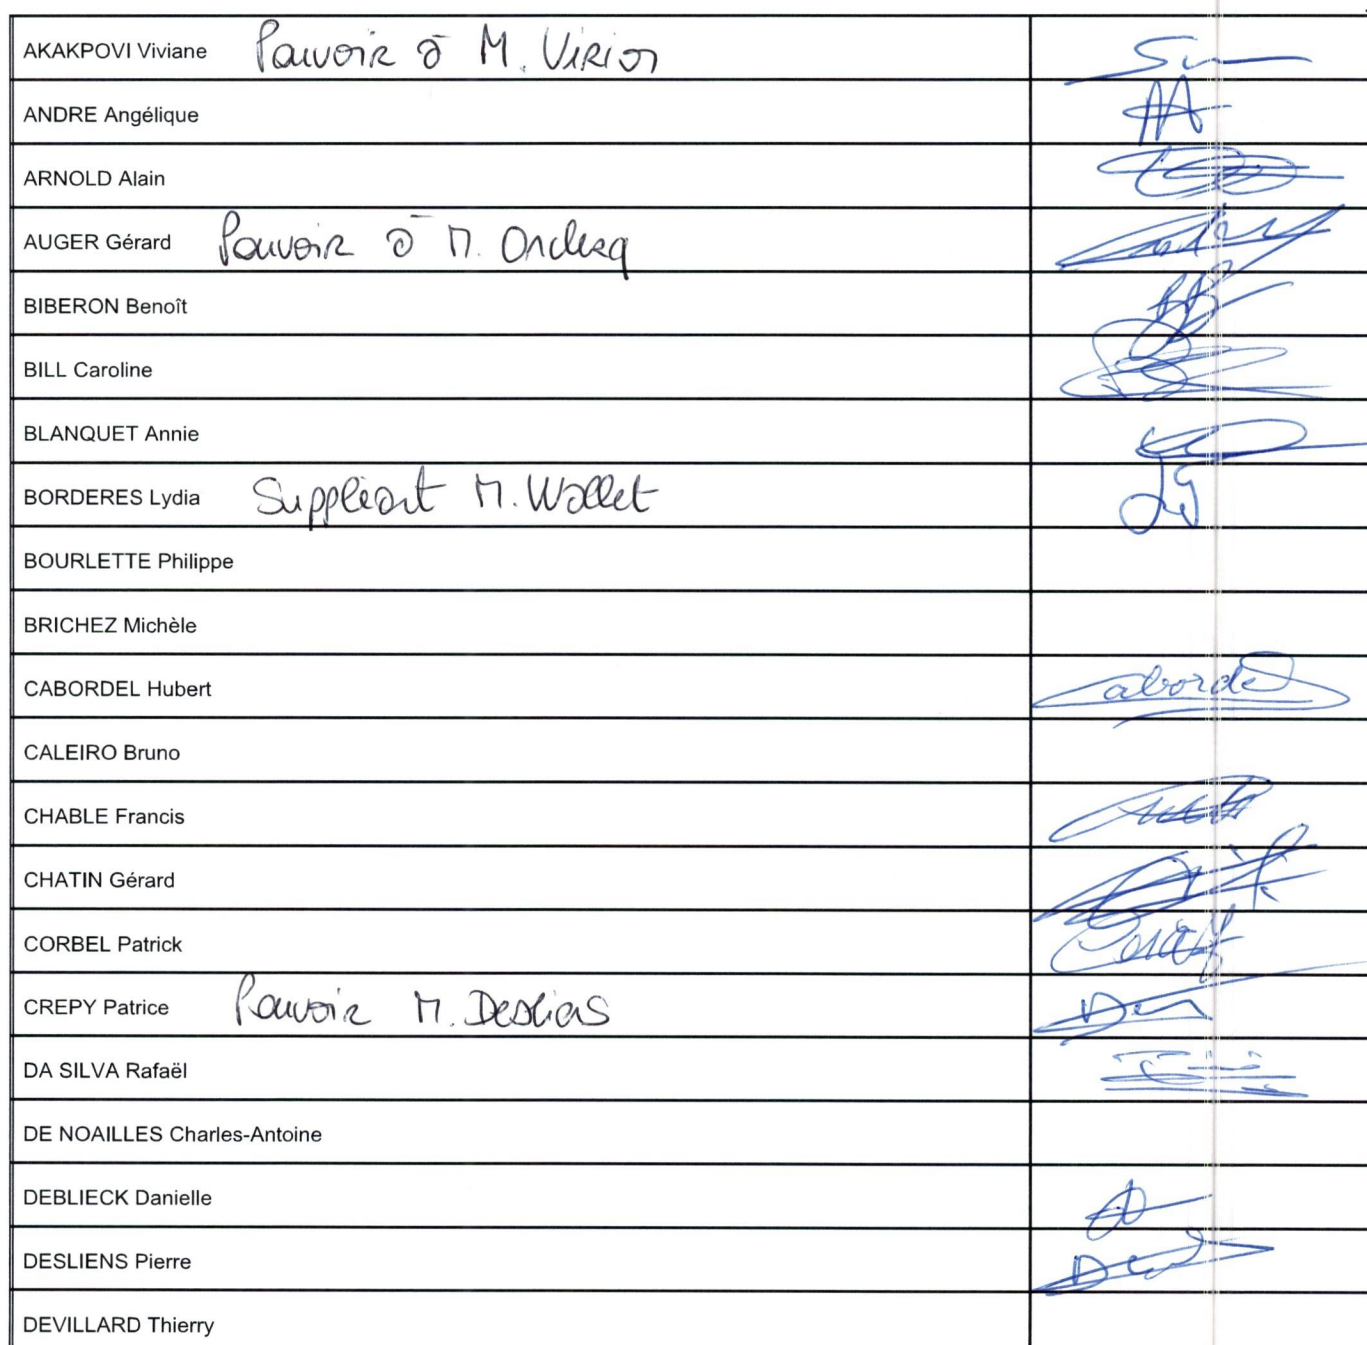 AKAKPOVI Viviane Pouvoir à M. Virion
ANDRE Angélique
ARNOLD Alain
AUGER Gérard Pouvoir à M.
BIBERON Benoît
BILL Caroline
BLANQUET Annie
BORDERES Lydia Suppléant M. Wallet
BOURLETTE Philippe
BRICHEZ Michèle
CABORDEL Hubert
CALEIRO Bruno
CHABLE Francis
CHATIN Gérard
CORBEL Patrick
CREPY Patrice Pouvoir M. Desliens
DA SILVA Rafaël
DE NOAILLES Charles-Antoine
DEBLIECK Danielle
DESLIENS Pierre
DEVILLARD Thierry